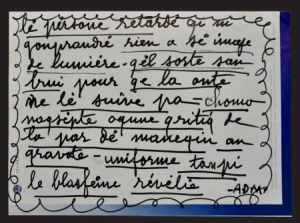 lé persone retardé qi ni
qonprandré rien a sé image
de lumière - qél sorte san
brui pour qe la onte
me lé suive pa - chomo
noqsepte oqune gritiq de
la par dé maneqin an
gravate - uniforme tanpi
le blasfeme révélie
- ADM